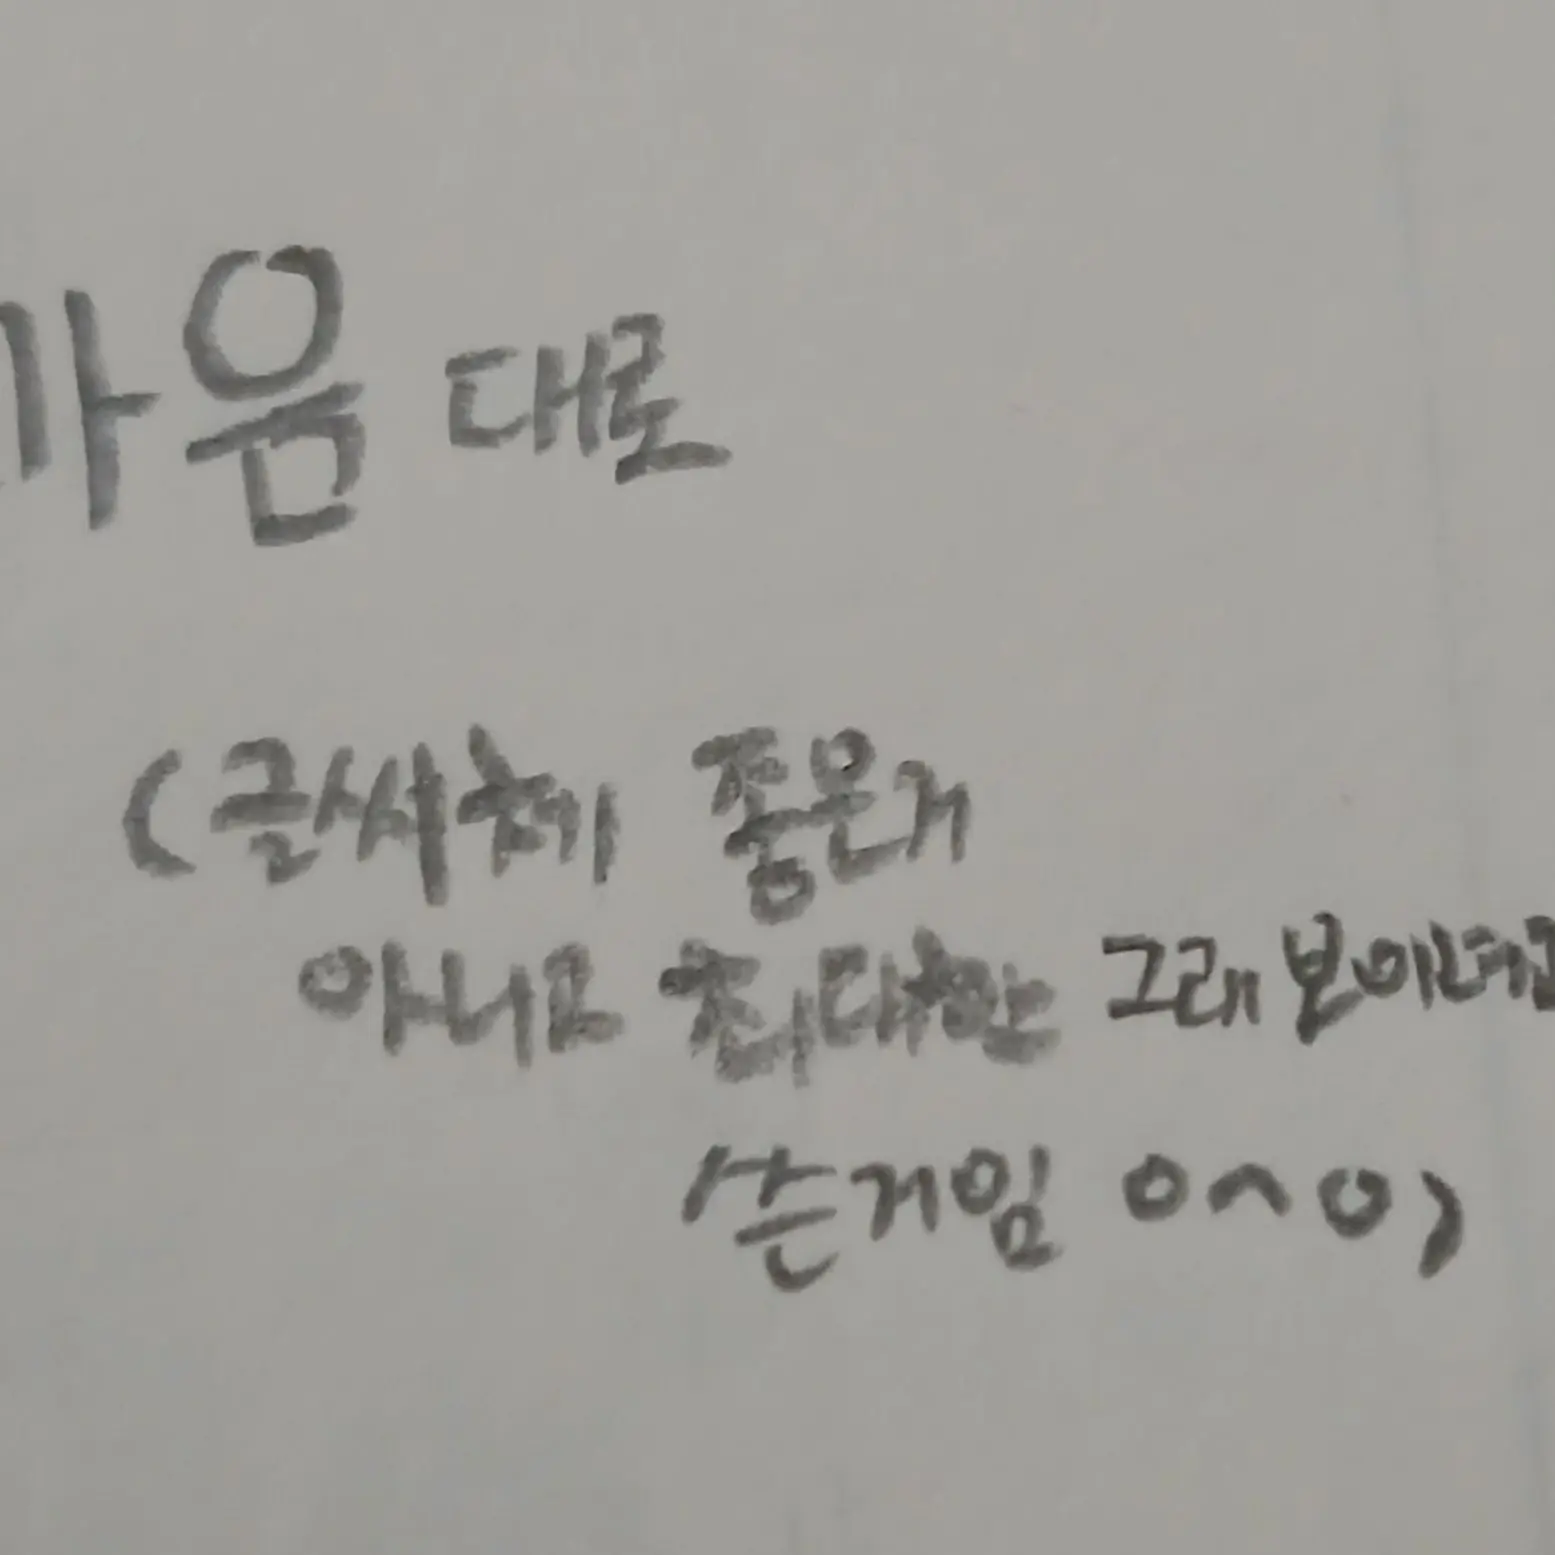 마음 대로
(글씨체 좋은거
아니고 최대한 그래 보이려고
쓴거임 o^o)